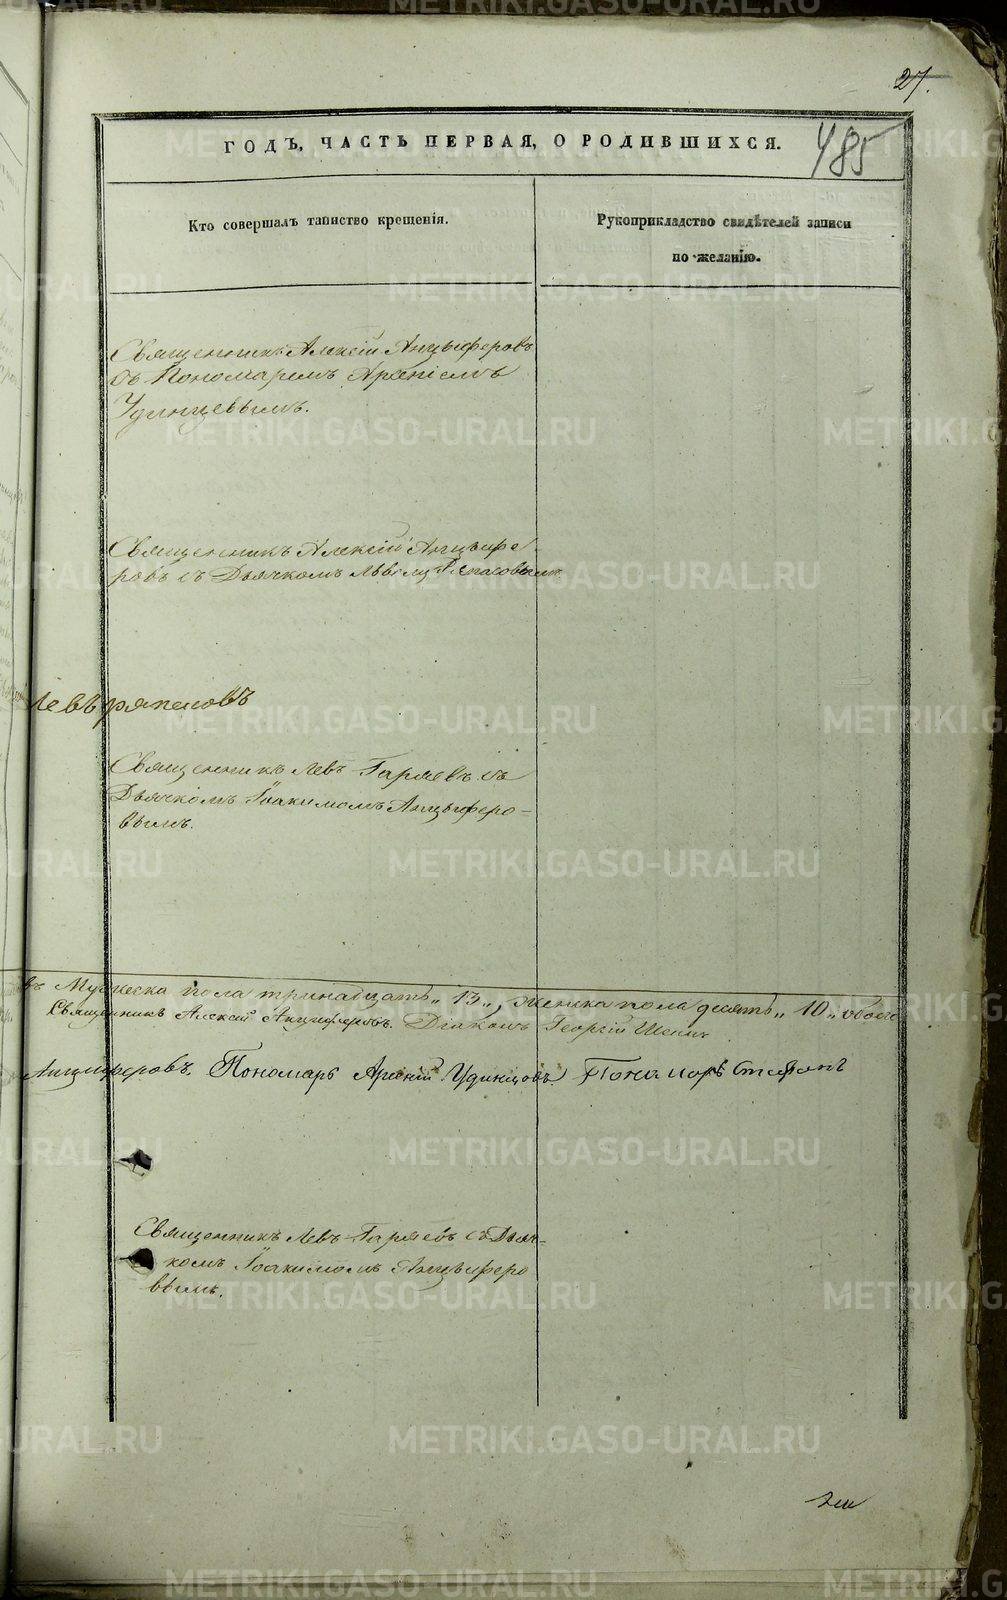 27.
485
ГОДЪ, ЧАСТЬ ПЕРВАЯ, О РОДИВШИХСЯ.
Кто совершалъ таинство крещенія.
Рукоприкладство свидѣтелей записи
по желанію.
Священникъ Алексій Анцыферовъ
съ Пономаремъ Арсеніемъ
Удинцевымъ.
Священникъ Алексій Анцыфе-
ровъ съ Дьячкомъ Львомъ
Левъ Ряпасовъ
Священникъ Левъ Гаряевъ съ
Дьячкомъ Іоакимомъ Анцыферо-
вымъ.
Мужеска пола тринадцать „13„, женска пола десять „10„ обоего
Священникъ Алексій Анциферовъ. Діаконъ Георгій
Анциферовъ. Пономарь Арсеній Удинцовъ Пономарь Стефанъ
Священникъ Левъ Гаряевъ съ Дьяч-
комъ Іоакимомъ Анцыферо
вымъ.
METRIKI.GASO-URAL.RU